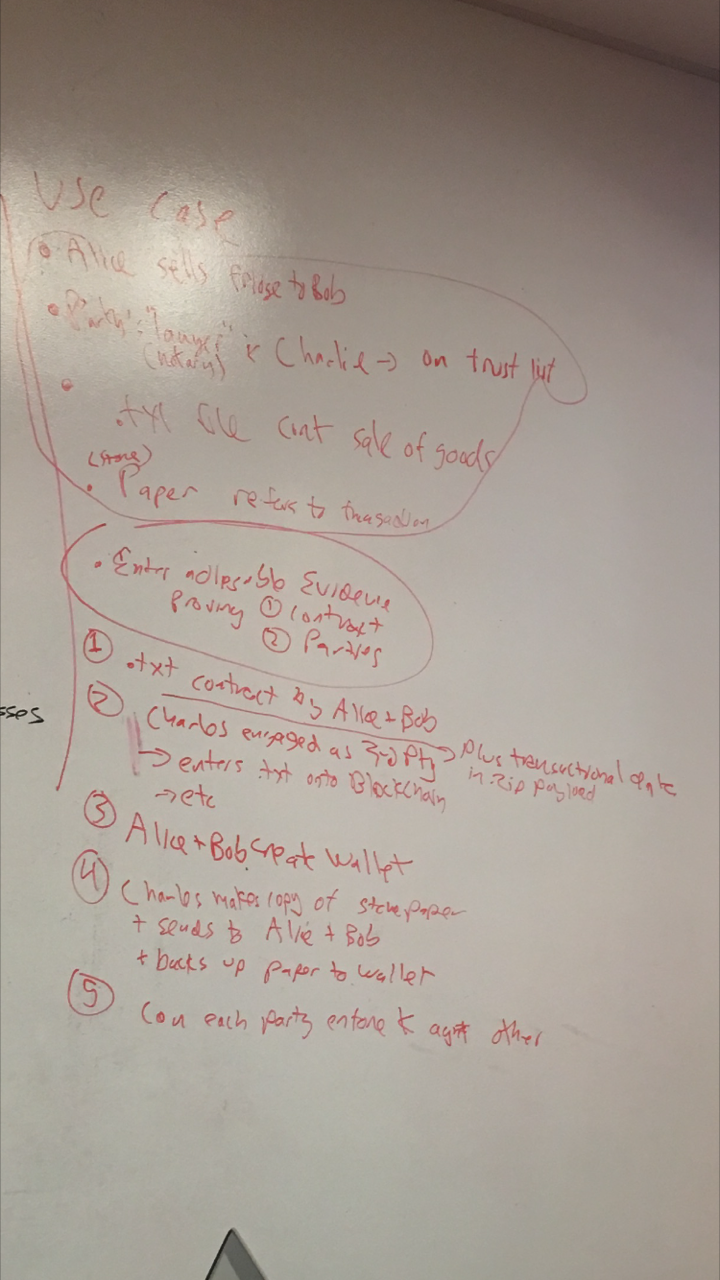 Use Case
• Alice sells fridge to Bob
• Party's "lawyer" is Charlie → on trust list
(notary)
•
.txt file cont sale of goods
(stone)
• Paper refers to
• Enter Evidence
proving ① contract
② Parties
① .txt contract by Alice + Bob
② Charles engaged as 3rd Pty → plus transactional data
in .zip payload
→ enters .txt onto Blockchain
→ etc
sses
③ Alice + Bob Creat Wallet
④ Charles makes copy of stone paper
+ sends to Alice + Bob
+ backs up paper to wallet
⑤ Can each party K agst other